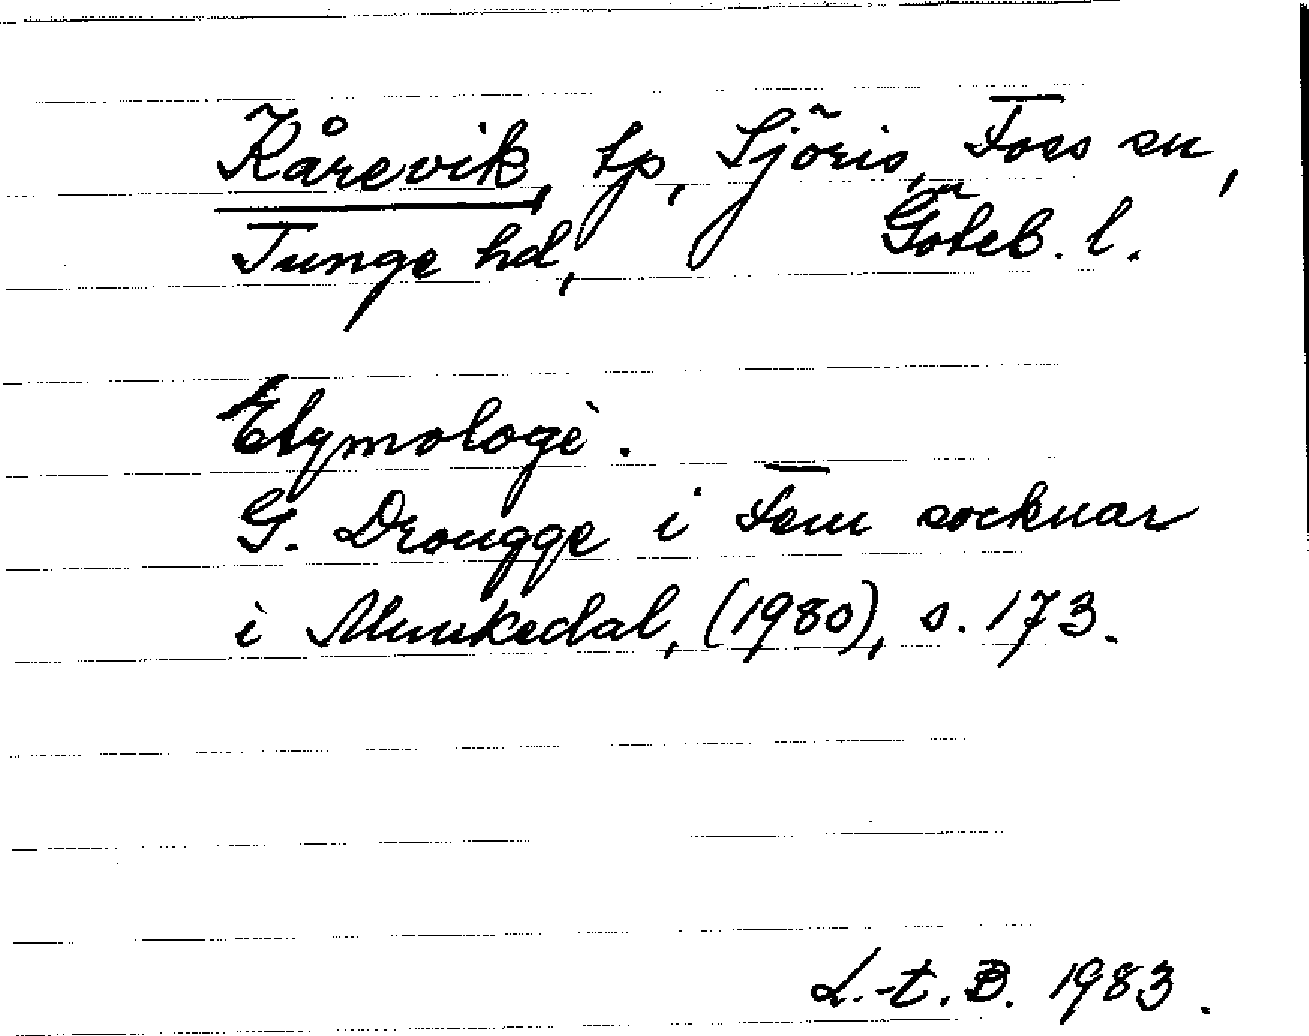 Kårevik, tp, Sjöris, Foss sn,
Tunge hd, Göteb. l.
Etymologi.
G. Drougge i Fem socknar
i Munkedal, (1980), s. 173.
L.-t. B. 1983.